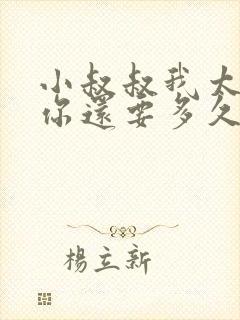 小叔叔我大
你還要多久
楊立新